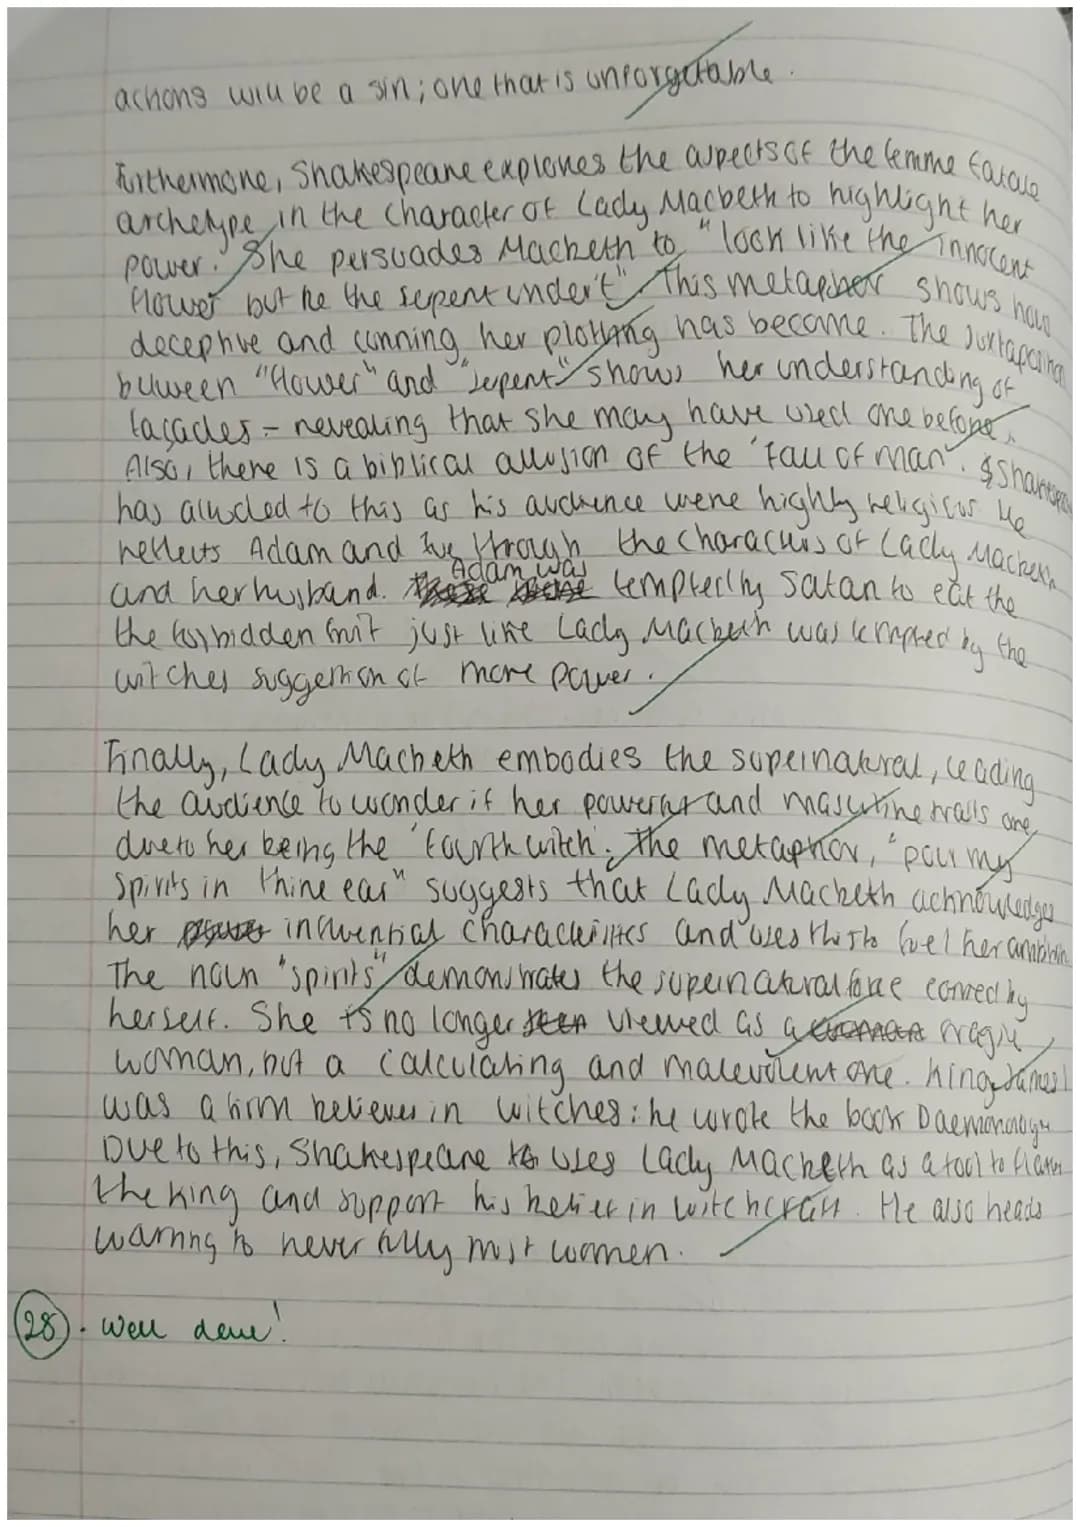 actions will be a sin; one that is unforgetable.
Furthermore, Shakespeare explores the aspects of the femme fatale
archetype in the character of Lady Macbeth to highlight her
power. She persuades Macbeth to "look like the innocent
flower but be the serpent under't". This metaphor shows how
deceptive and cunning her plotting has become. The juxtaposition
between "flower" and "serpent" shows her understanding of
façades - revealing that she may have used one before.
Also, there is a biblical allusion of the 'Fall of man'. Shakespeare
has alluded to this as his audience were highly religious. He
reflects Adam and Eve through the characters of Lady Macbeth
and her husband. Adam was tempted by Satan to eat the
the forbidden fruit just like Lady Macbeth was tempted by the
witches suggestion of more power.
Finally, Lady Macbeth embodies the supernatural, leading
the audience to wonder if her powerful and masculine traits are
due to her being the 'fourth witch'. The metaphor, "pour my
spirits in thine ear" suggests that Lady Macbeth acknowledges
her influential characteristics and uses this to fuel her ambition.
The noun "spirits" demonstrates the supernatural force by
herself. She is no longer viewed as a fragile
woman, but a calculating and malevolent one. King James I
was a firm believer in witches: he wrote the book Daemonology
Due to this, Shakespeare uses Lady Macbeth as a tool to flatter
the king and support his belief in witchcraft. He also heads
warning to never fully trust women.
28. Well done!